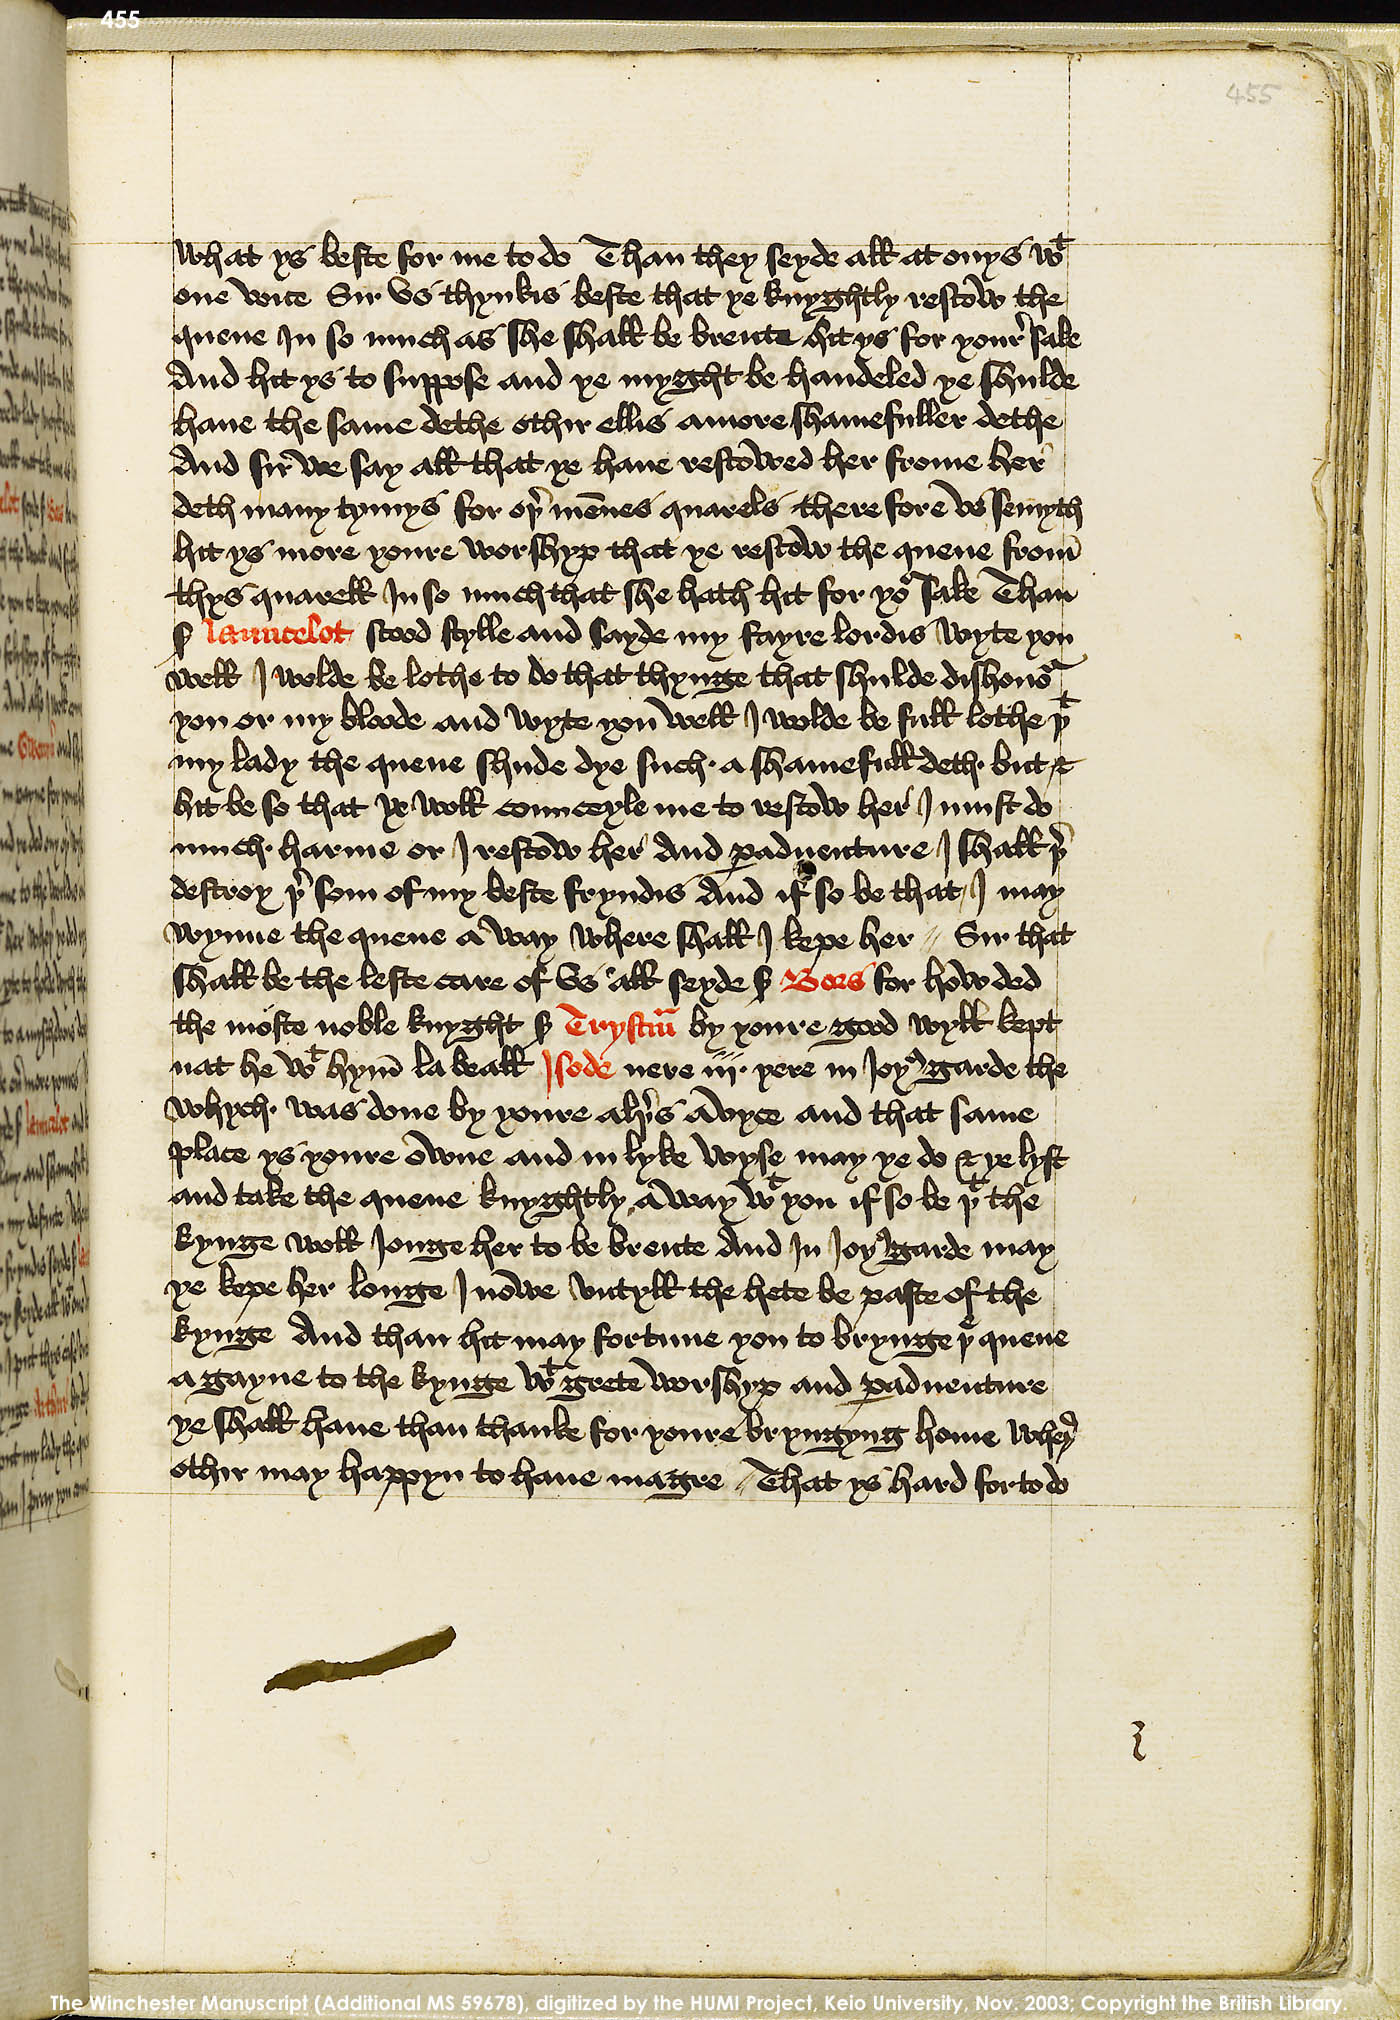 455
455
What ys beste for me to do Than they seyde all at onys wt
one voice Sir vs thynkis beste that ye knyghtly restow the
quene In so much as she shall be brente hit ys for your sake
And hit ys to suppose and ye myght be handeled ye shulde
haue the same dethe othir ellis a more shamefuller dethe
And sir we say all that ye haue restowed her frome her
deth many tymys for oþr mēnes quarels there fore vs semyth
hit ys more youre worshyp that ye restow the quene from
thys quarell In so much that she hath hit for yor sake Than
sr launcelot stood stylle and sayde my fayre lordis wyte you
well I wolde be lothe to do that thynge that shulde dishonor
you or my bloode and wyte you well I wolde be full lothe þt
my lady the quene shude dye such a shamefull deth but &
hit be so that ye woll counceyle me to restow her I must do
much harme or I restow her And paduenture I shall þr
destroy þr som of my beste fryndis And if so be that I may
wynne the quene a way where shall I kepe her // Sir that
shall be the leste care of vs all seyde sr Bors for how ded
the moste noble knyght sr Trystrm̄ by youre good wyll kept
nat he wt hym̄ la beall Isode nere iij yere in Joyous garde the
whych was done by youre alþrs avyce and that same
place ys youre owne and in lyke wyse may ye do & ye lyst
and take the quene knyghtly a way wt you if so be þt the
kynge woll Jouge her to be brente And In Joyous garde may
ye kepe her longe I nowe vntyll the hete be paste of the
kynge And than hit may fortune you to brynge þe quene
a gayne to the kynge wt grete worshyp and paduenture
ye shall haue than thanke for youre bryngyng home wheþr
othir may happyn to haue magre // That ys hard for to do
The Winchester Manuscript (Additional MS 59678), digitized by the HUMI Project, Keio University, Nov. 2003; Copyright the British Library.